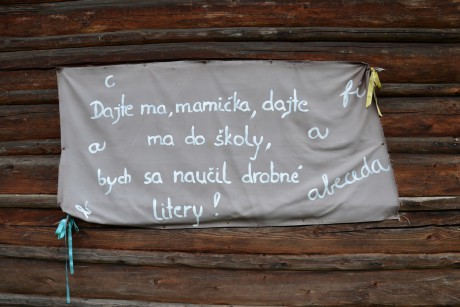 c
Dajte ma, mamička, dajte
fi
a ma do školy, a
bych sa naučil drobné
abeceda
litery!